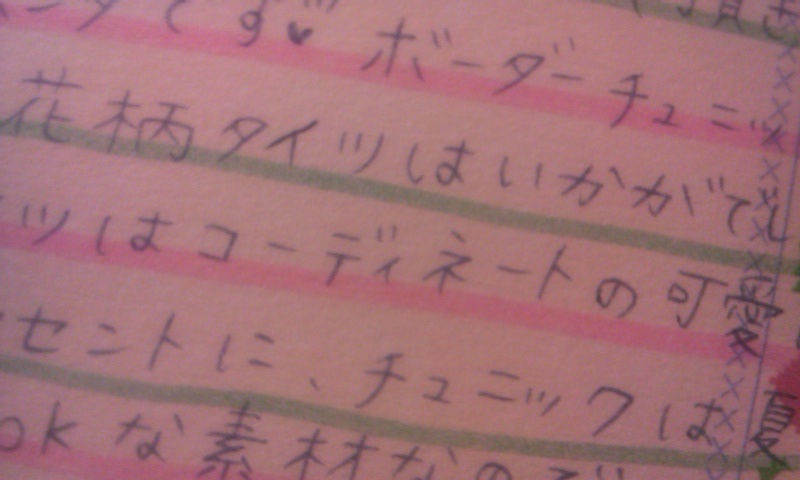 です♥ ボーダーチュニッ
花柄タイツはいかがで
ツはコーディネートの可愛
セントに、チュニックは夏
okな素材なので